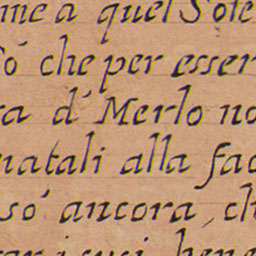 me a quel Sole
ò che per esser
ra d' Merlo no
natali alla fac
sò ancora, ch